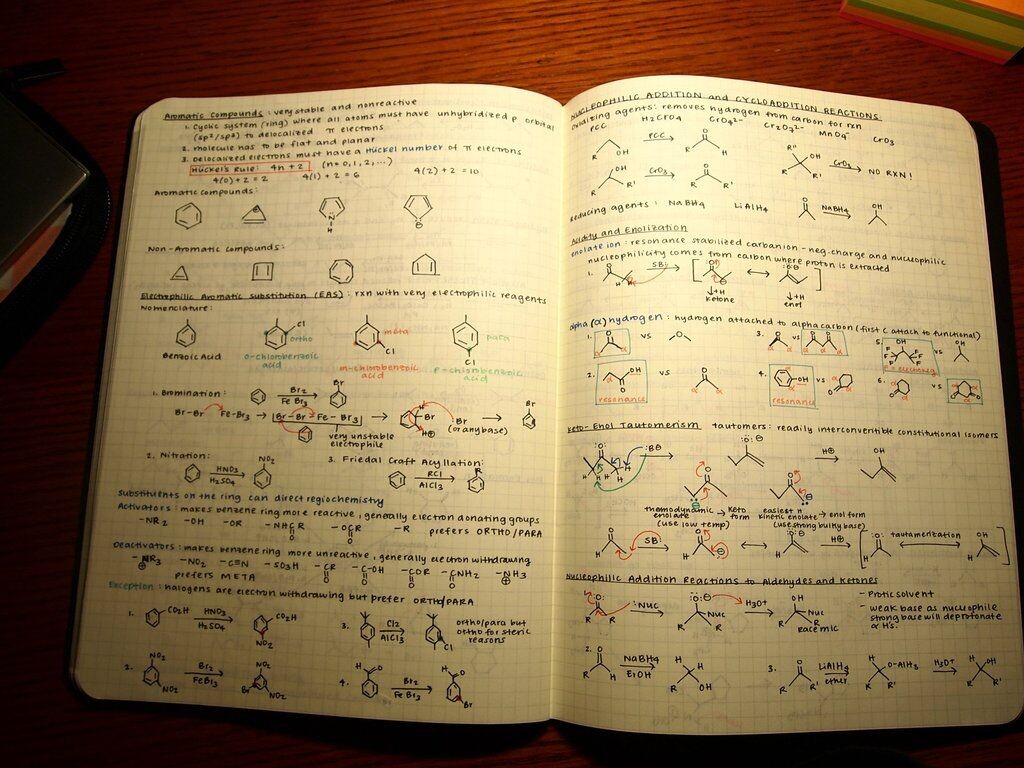 Aromatic Compounds: very stable and nonreactive
1. Cyclic system (ring) where all atoms must have unhybridized p orbital
(sp²/sp³) to delocalized π electrons
2. molecule has to be flat and planar
3. Delocalized electrons must have a Hückel number of π electrons
Hückel's Rule: 4n+2 (n=0,1,2,...)
4(0)+2=2 4(1)+2=6 4(2)+2=10
Aromatic compounds:
N
H
Non-Aromatic Compounds:
Electrophilic Aromatic Substitution (EAS): rxn with very electrophilic reagents
Nomenclature:
Cl
ortho
meta
Cl
para
Cl
Benzoic Acid
o-chlorobenzoic acid
m-chlorobenzoic acid
p-chlorobenzoic acid
1. Bromination:
Br₂
FeBr₃
Br
Br-Br Fe-Br₃ → Br-Br-Fe-Br₃ →
very unstable
electrophile
H
Br
Br
(or any base)
H⊕
Br
2. Nitration:
HNO₃
H₂SO₄
NO₂
3. Friedal Craft Acyllation:
RCl
AlCl₃
R
Substituents on the ring can direct regiochemistry
Activators: makes benzene ring more reactive, generally electron donating groups
-NR₂ -OH -OR -NHCR -OCR -R prefers ORTHO/PARA
Deactivators: makes benzene ring more unreactive, generally electron withdrawing
-NR₃ -NO₂ -C≡N -SO₃H -CR -COH -COR -CNH₂ -NH₃
prefers META
Exception: halogens are electron withdrawing but prefer ORTHO/PARA
1.
CO₂H
HNO₃
H₂SO₄
CO₂H
NO₂
3.
Cl₂
AlCl₃
Cl
ortho/para but
ortho for steric
reasons
2.
NO₂
NO₂
Br₂
FeBr₃
NO₂
Br
NO₂
4.
H
O
Br₂
FeBr₃
H
O
Br
NUCLEOPHILIC ADDITION and CYCLOADDITION REACTIONS
Oxidizing agents: removes hydrogen from carbon for rxn
PCC H₂CrO₄ CrO₄²⁻ Cr₂O₇²⁻ MnO₄⁻ CrO₃
OH
PCC
O
H
R"
OH
R R'
CrO₃
NO RXN!
OH
R R'
CrO₃
O
R R'
Reducing agents: NaBH₄ LiAlH₄
O
NaBH₄
OH
Acidity and Enolization
enolate ion: resonance stabilized carbanion - neg. charge and nucleophilic
nucleophilicity comes from carbon where proton is extracted
1.
O
H
SB:
O
O
↓+H
ketone
↓+H
enol
alpha (α) hydrogen: hydrogen attached to alpha carbon (first C attach to functional)
1. O α α vs O
3. vs
5. OH F F F F F F vs OH
F = electroneg
2. O OH α resonance vs O α α
4. OH resonance vs O α α
6. O α α vs
Keto-Enol Tautomerism tautomers: readily interconvertible constitutional isomers
O
H H H H
:B⊖
O
H⊕
OH
O
O
thermodynamic → keto
enolate form
(use low temp)
easiest H
kinetic enolate → enol form
(use strong bulky base)
O
H
SB:
O
H
O
H
H⊕
tautamerization
OH
H
Nucleophilic Addition Reactions to Aldehydes and Ketones
1.
O
R R
:Nuc
O
Nuc
R R
H₃O⁺
OH
Nuc
R R
racemic
- Protic solvent
- weak base as nucleophile
strong base will deprotonate
α H's.
2.
O
R H
NaBH₄
EtOH
H H
R OH
3.
O
R R'
LiAlH₄
ether
H O-AlH₃
R R'
H₃O⁺
H OH
R R'